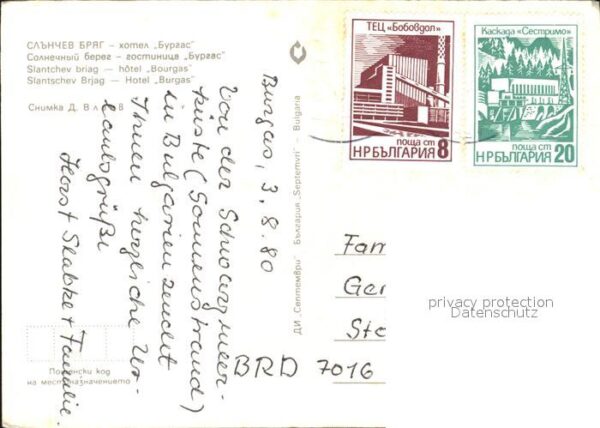 СЛЪНЧЕВ БРЯГ – хотел „Бургас"
Солнечный берег – гостиница „Бургас"
Slantchev briag – hôtel „Bourgas"
Slantschev Brjag – Hotel „Burgas"
Снимка Д. В
Burgas, 3. 8. 80
Von der Schwarzmeer-
küste (Sonnenstrand)
in Bulgarien sendet
Ihnen herzliche Ur-
laubsgrüße
Horst + Familie
Пощенски код
на местоназначението
ДИ „Септември" България „Septemvri" – Bulgaria
ТЕЦ „Бобовдол"
поща ст
НР БЪЛГАРИЯ 8
Каскада „Сестримо"
поща ст
НР БЪЛГАРИЯ 20
Fam
Ger
Ste
BRD 7016
privacy protection
Datenschutz